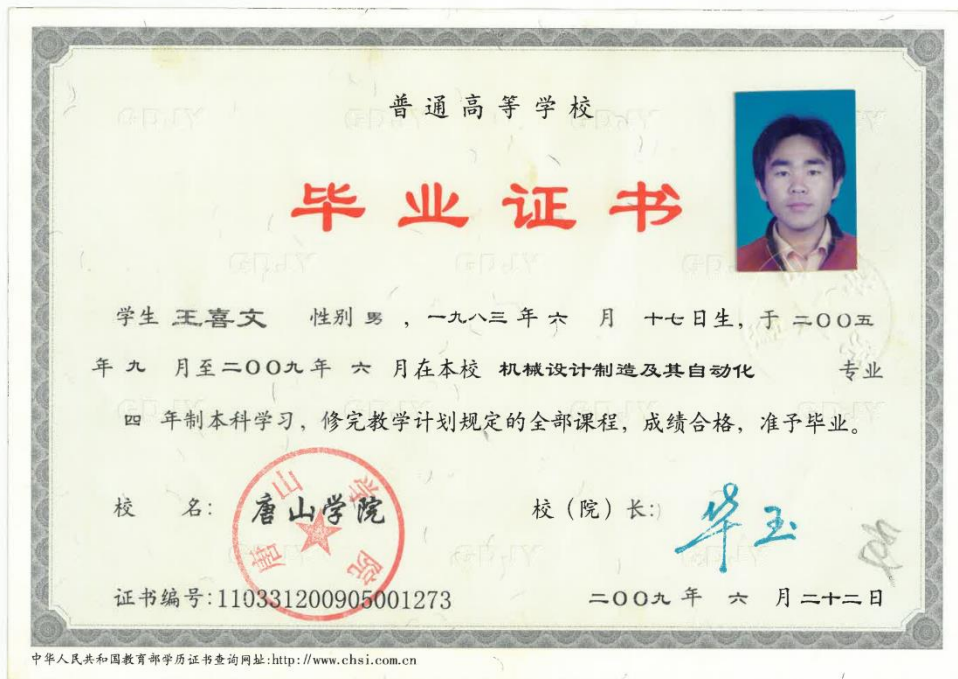 普通高等学校
毕业证书
学生 王喜文 性别 男 ，一九八三 年 六 月 十七日生，于 二〇〇五
年 九 月至二〇〇九年 六 月在本校 机械设计制造及其自动化 专业
四 年制本科学习，修完教学计划规定的全部课程，成绩合格，准予毕业。
校 名： 唐山学院 校（院）长：华玉
唐山学院
证书编号:110331200905001273 二〇〇九 年 六 月 二十二日
中华人民共和国教育部学历证书查询网址:http://www.chsi.com.cn